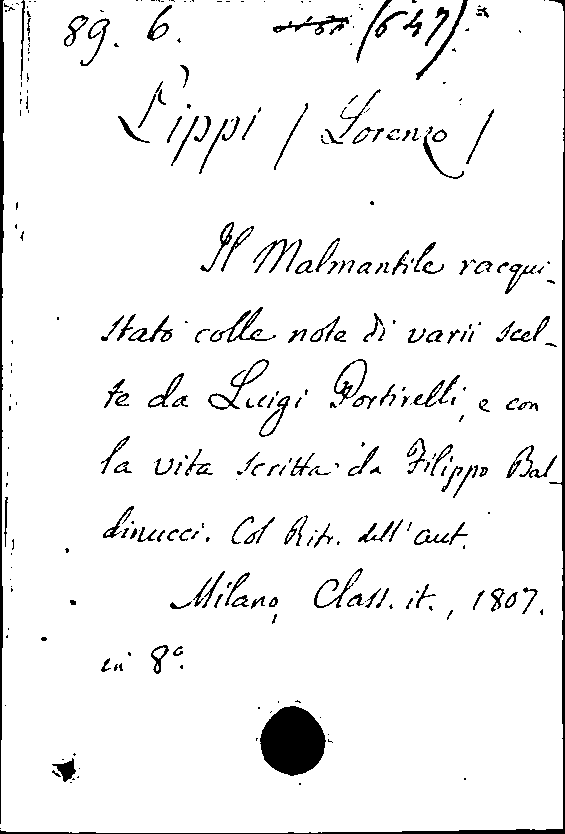 89. 6. (647).
Lippi / Lorenzo /
Il Malmantile racqui-
stato colle note di varii scel-
te da Luigi Portirelli, e con
la vita scritta da Filippo Bal-
dinucci. Col Ritr. dell'aut.
Milano, Class. it., 1807.
in 8°.